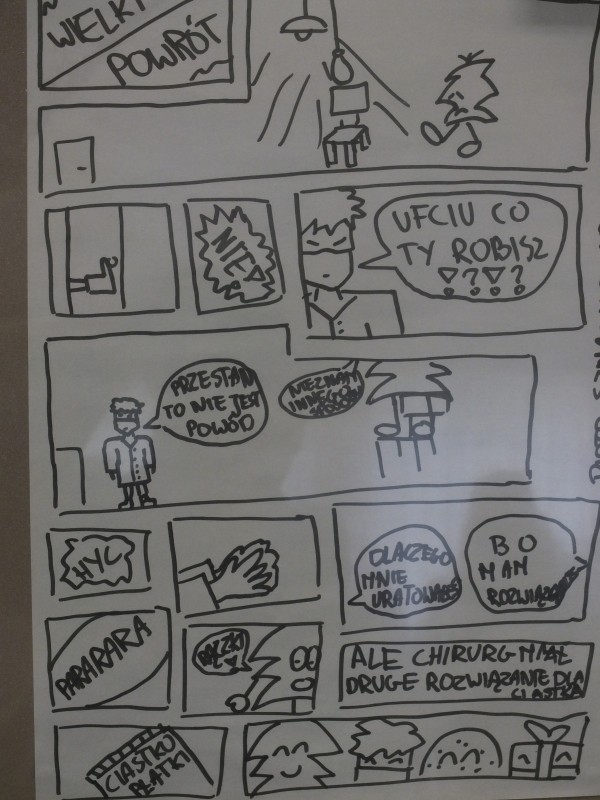 WIELKI
POWRÓT
NIE!
UFCIU CO
TY ROBISZ
!?!?
PRZESTAŃ
TO NIE JEST
POWÓD
NIEZNAM
INNEGO
HYC
DLACZEGO
MNIE
URATOWAŁEŚ
BO
MAM
ROZWIĄZANIE
PARARARA
PĄCZKI
ALE CHIRURG MIAŁ
DRUGE ROZWIĄZANIE DLA
CIASTKA
CIASTKO
PŁATKI